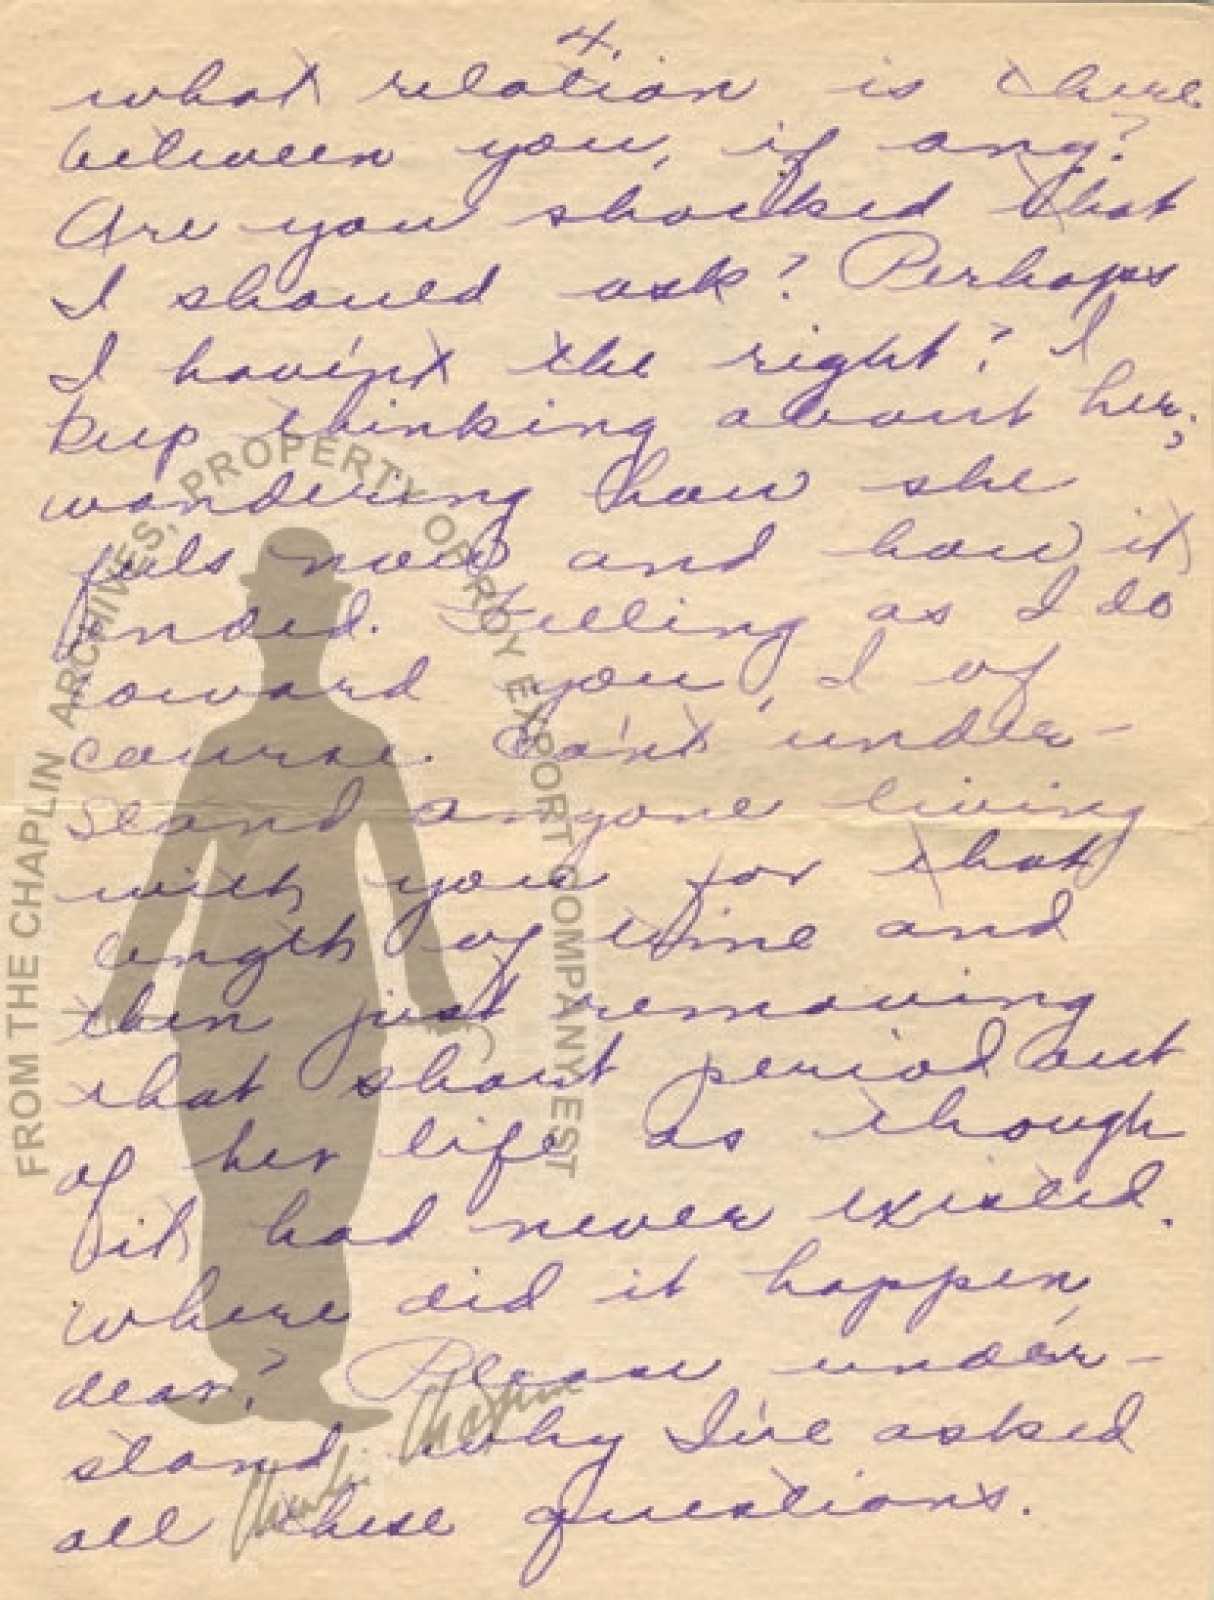 4.
what relation is there
between you, if any?
Are you shocked that
I should ask? Perhaps
I havin't the right? I
keep thinking about her,
wondering how she
feels now and how it
ended. Feeling as I do
toward you, I of
course. can't under-
stand anyone living
with you for that
length of time and
then just removing
that short period out
of her life as though
it had never existed.
where did it happen
dear? Please under-
stand why I've asked
all these questions.
FROM THE CHAPLIN ARCHIVES, PROPERTY OF ROY EXPORT COMPANY EST
Charlie Chaplin